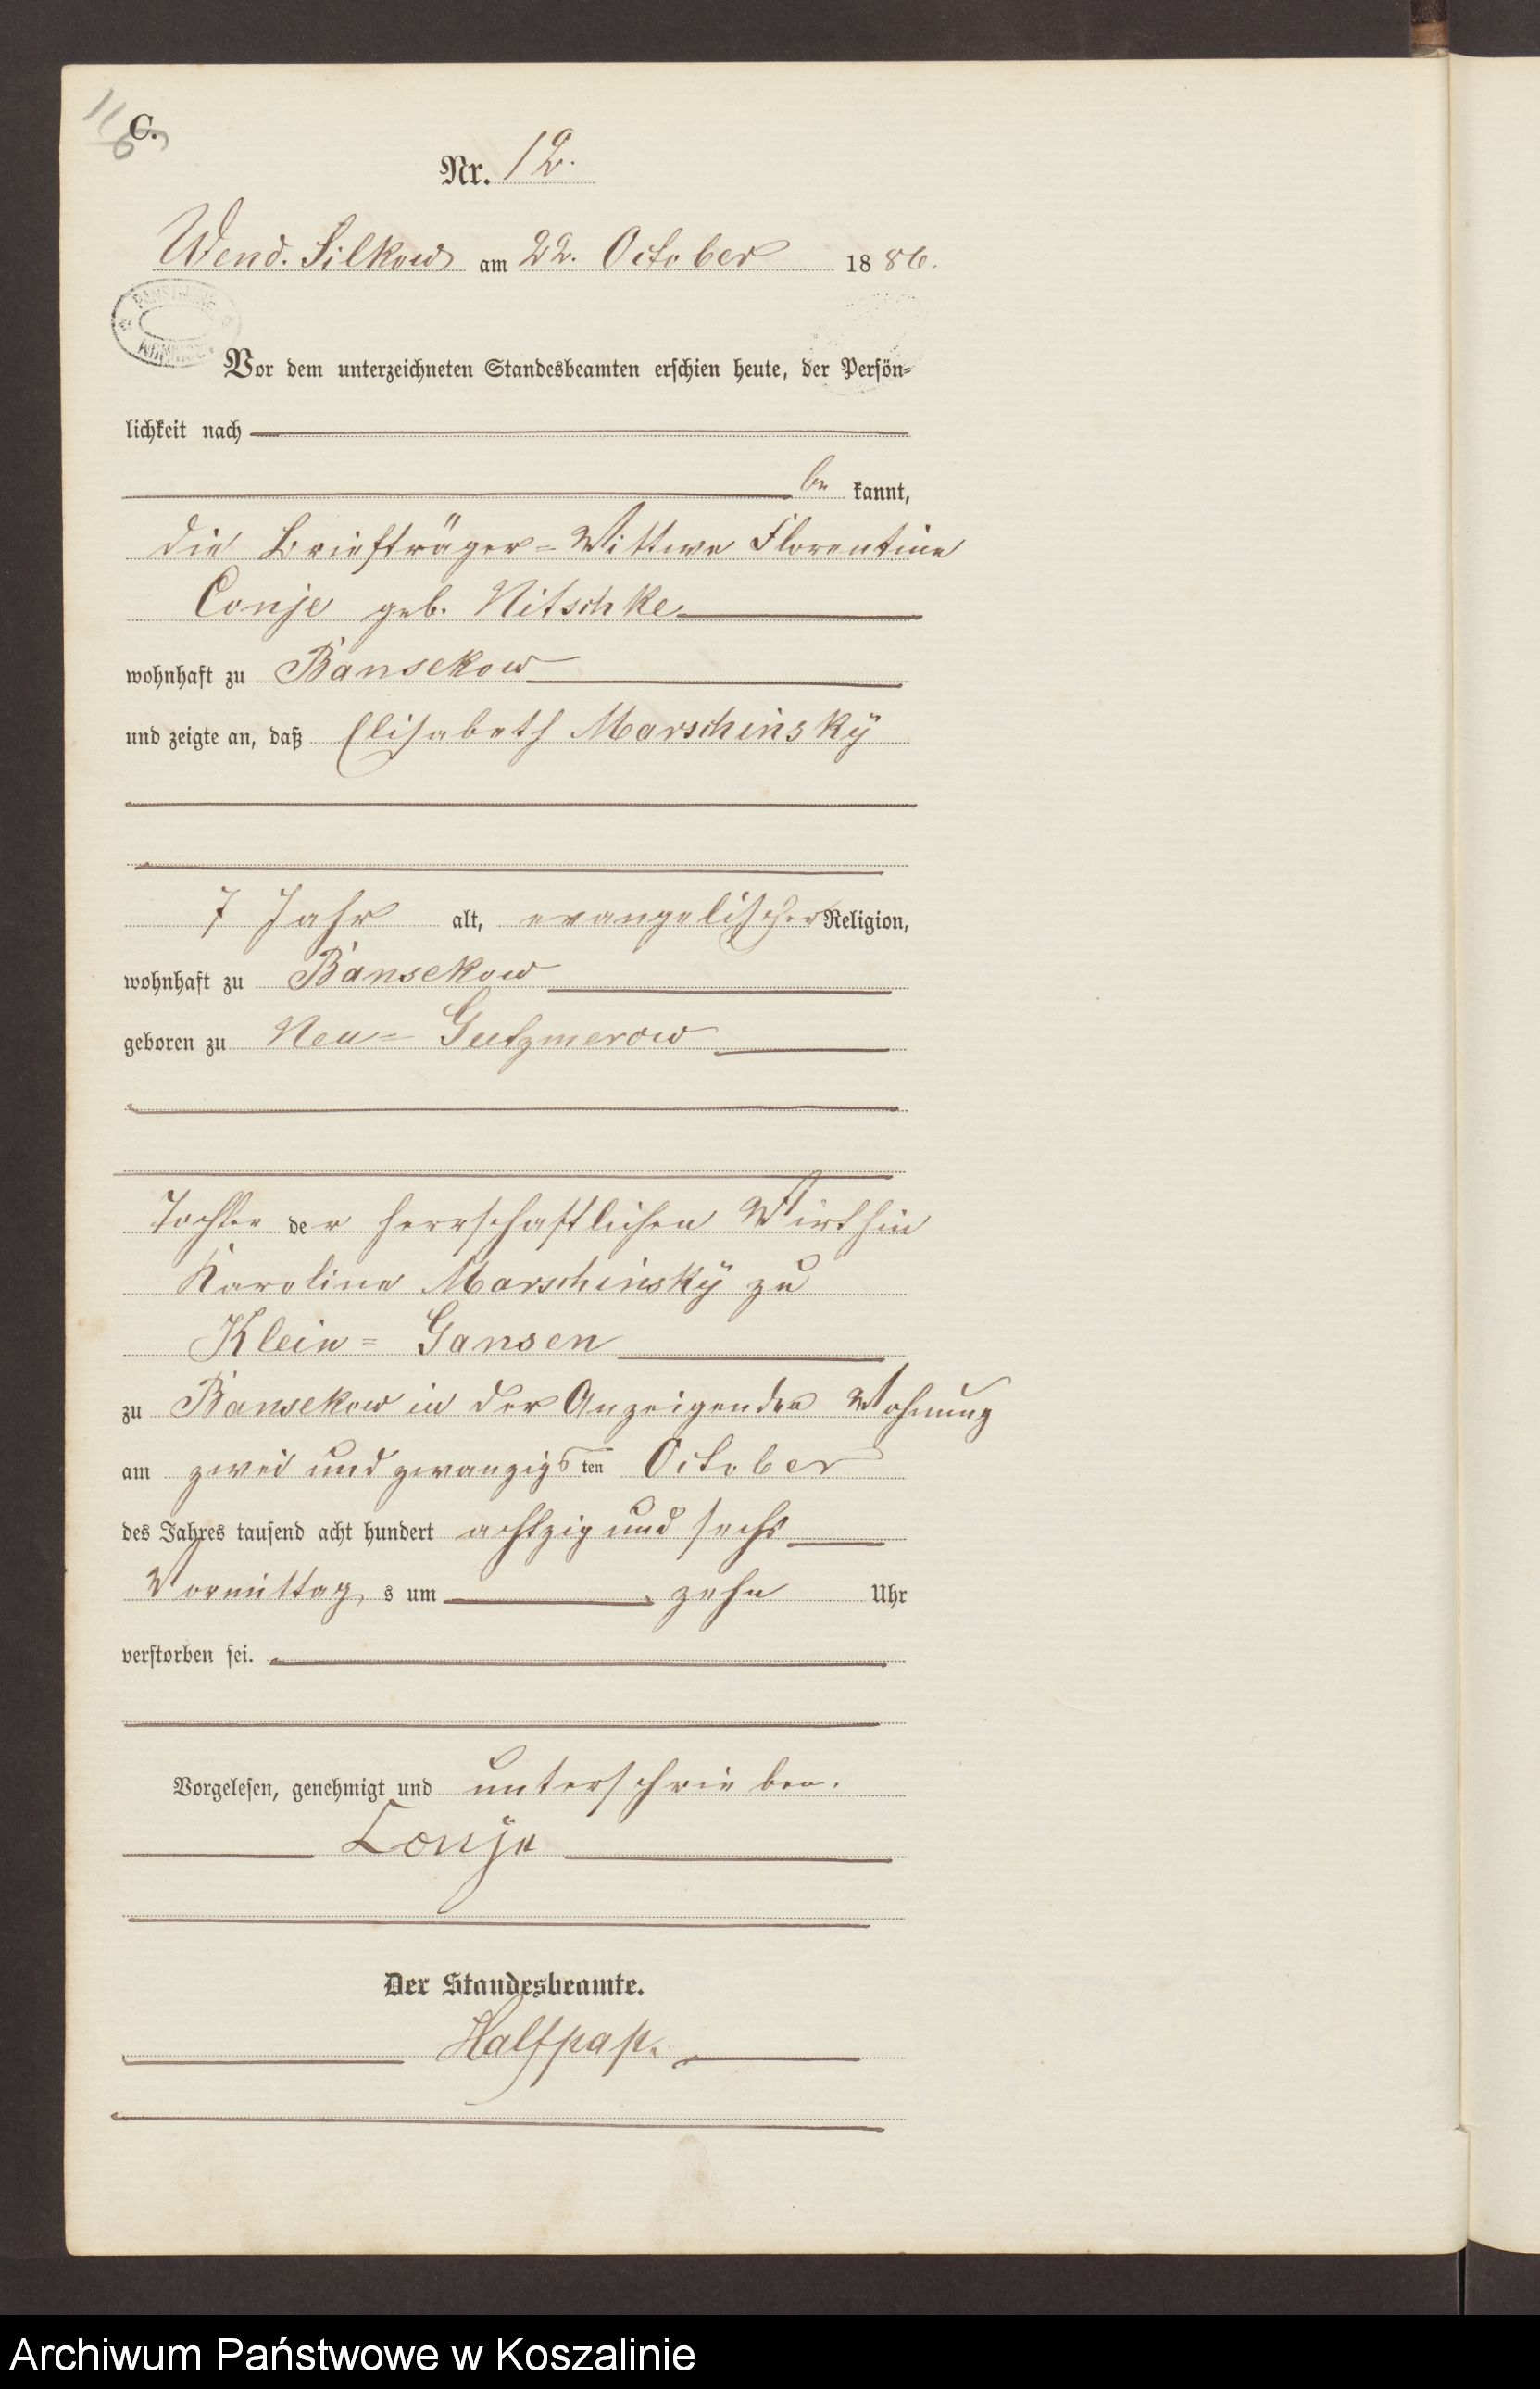 C.
Nr. 12.
Wend. Silkow am 22. October 1886.
Vor dem unterzeichneten Standesbeamten erschien heute, der Persön-
lichkeit nach
be kannt,
die Briefträger-Wittwe Florentine
Conje geb. Nitschke
wohnhaft zu Bansekow
und zeigte an, daß Elisabeth Marschinsky
7 Jahr alt, evangelischer Religion,
wohnhaft zu Bansekow
geboren zu Neu-Gutzmerow
Tochter der herrschaftlichen Wirthin
Karoline Marschinsky zu
Klein-Gansen
zu Bansekow in der Anzeigenden Wohnung
am zwei und zwanzigsten October
des Jahres tausend acht hundert achtzig und sechs
Vormittags um zehn Uhr
verstorben sei.
Vorgelesen, genehmigt und unterschrieben.
Conje
Der Standesbeamte.
Halfpap.
Archiwum Państwowe w Koszalinie